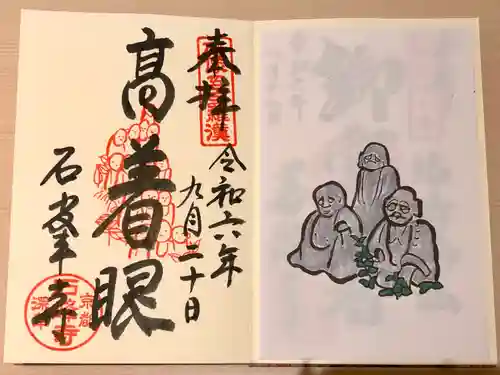 奉拝
令和六年
九月二十日
高着眼
石峯寺
五百羅漢
京都
深草
石峰寺